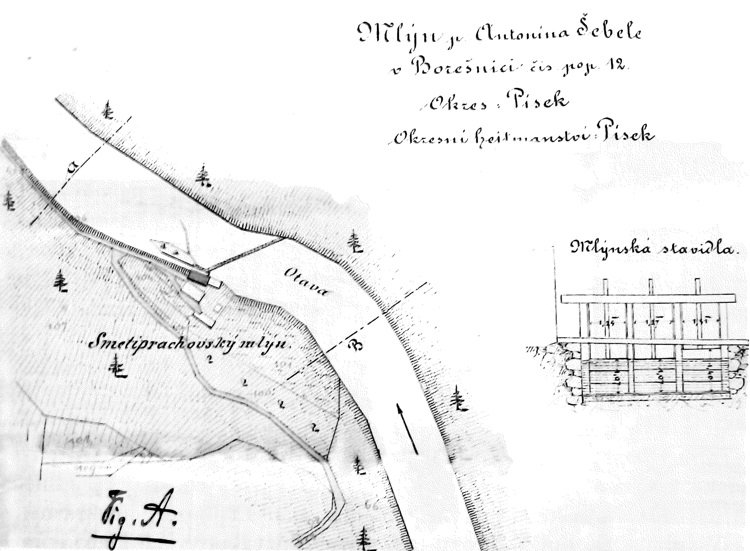 Mlýn p. Antonína Šebele
v Borešnici čís pop. 12.
Okres: Písek
Okresní hejtmanství: Písek
a
Mlýnská stavidla.
Otava
B
Smetiprachovský mlýn.
107
Fig. A.
66